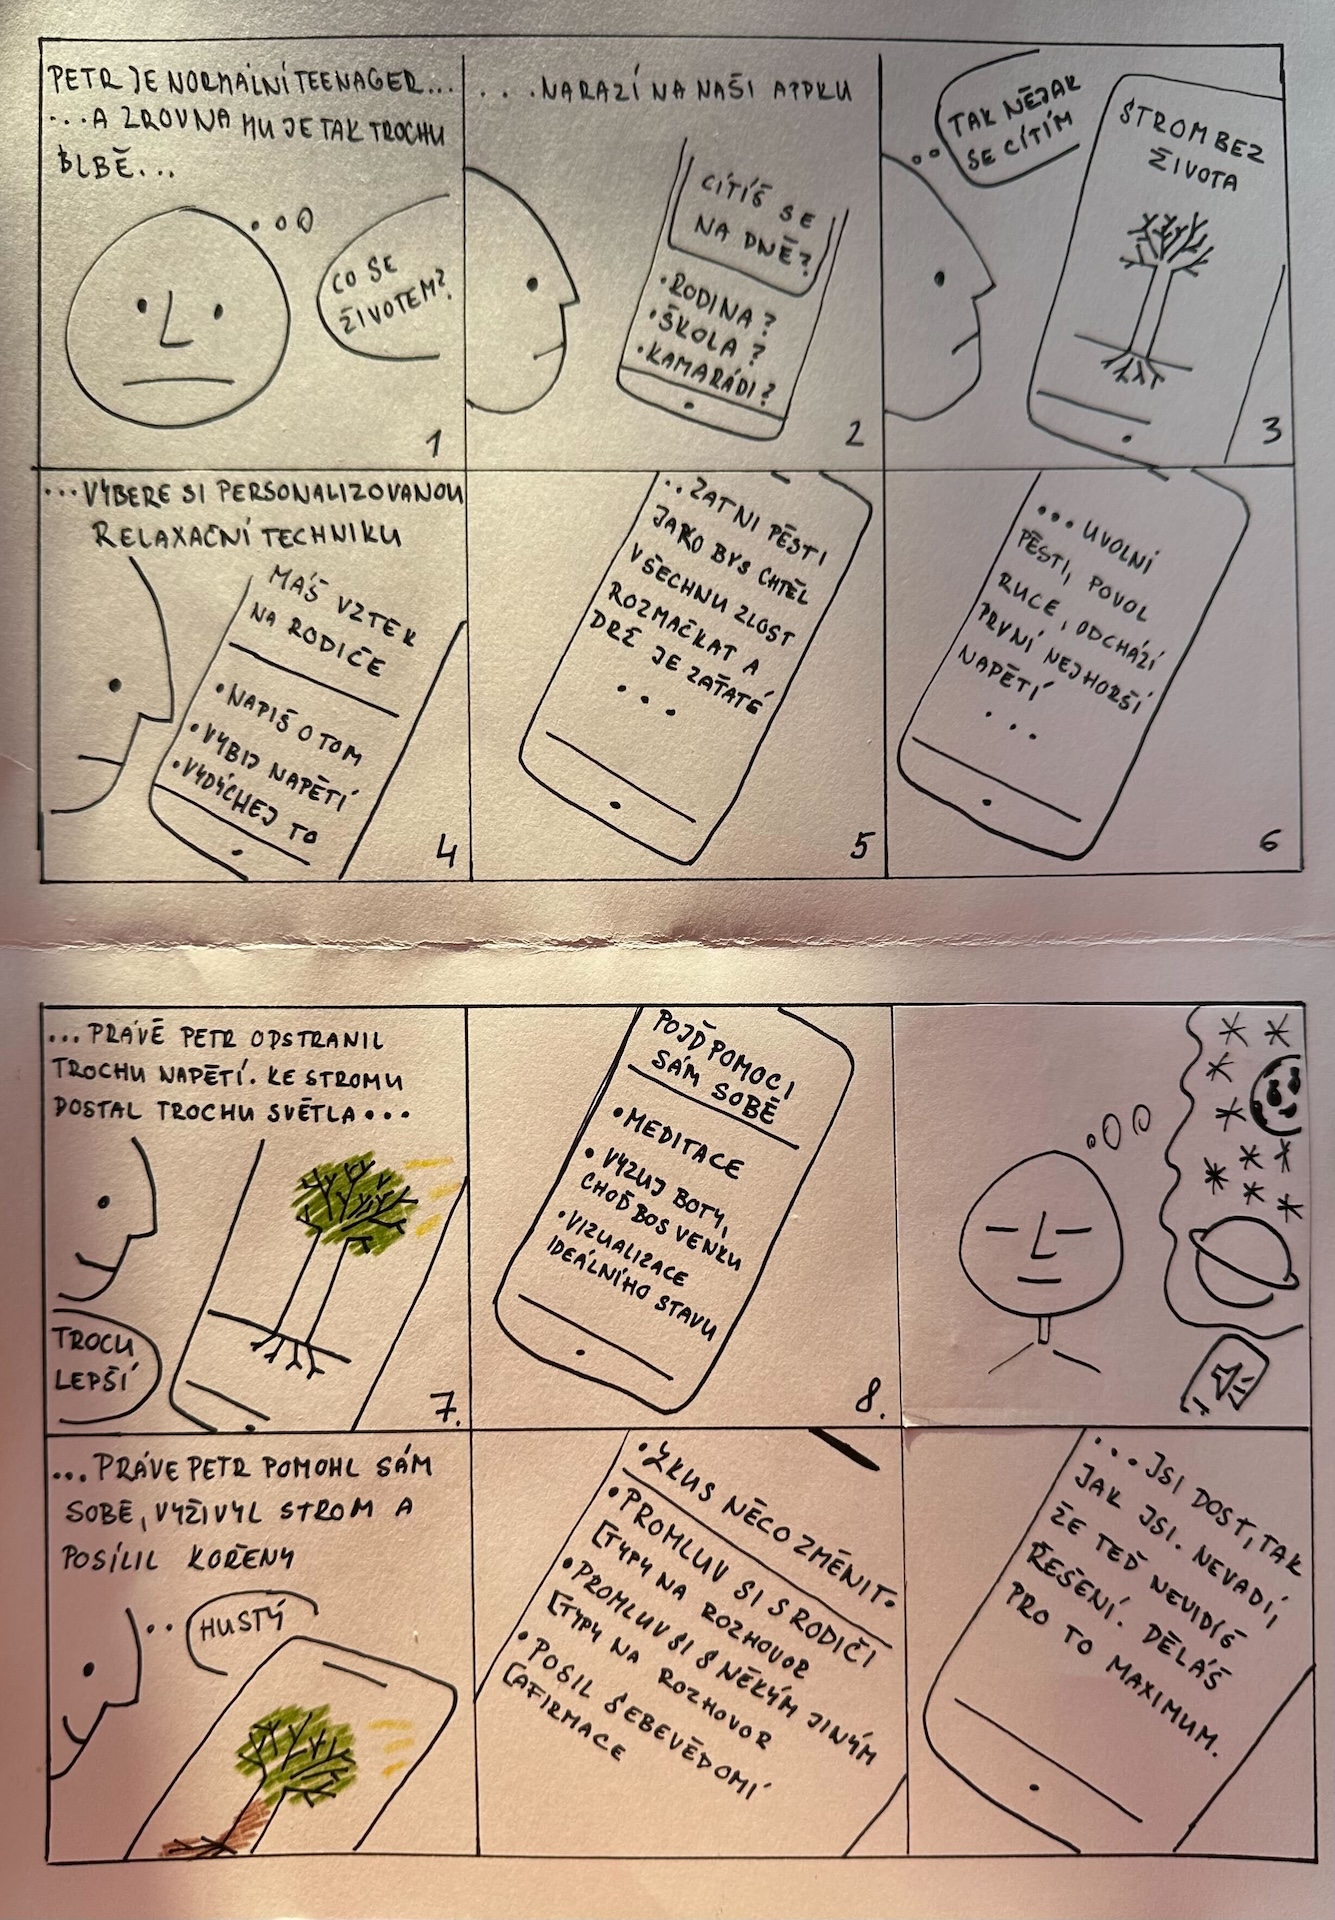 PETR JE NORMALNÍ TEENAGER...
...A ZROVNA MU JE TAK TROCHU
BLBĚ...
CO SE
ŽIVOTEM?
1
....NARAZÍ NA NAŠI APPKU
CÍTÍŠ SE
NA DNĚ?
•RODINA?
•ŠKOLA?
•KAMARÁDI?
2
TAK NĚJAK
SE CÍTÍM
STROM BEZ
ŽIVOTA
3
...VYBERE SI PERSONALIZOVANOU
RELAXAČNÍ TECHNIKU
MÁŠ VZTEK
NA RODIČE
•NAPIŠ O TOM
•VYBIJ NAPĚTÍ
•VYDÝCHEJ TO
4
..ZATNI PĚSTI
JAKO BYS CHTĚL
VŠECHNU ZLOST
ROZMAČKAT A
DRŽ JE ZAŤATÉ
...
5
...UVOLNI
PĚSTI, POVOL
RUCE, ODCHÁZÍ
PRVNÍ NEJHORŠÍ
NAPĚTÍ
...
6
...PRÁVĚ PETR ODSTRANIL
TROCHU NAPĚTÍ. KE STROMU
DOSTAL TROCHU SVĚTLA...
TROCU
LEPŠÍ
7.
POJĎ POMOCI
SÁM SOBĚ
•MEDITACE
•VYZUJ BOTY,
CHOĎ BOS VENKU
•VIZUALIZACE
IDEÁLNÍHO STAVU
8.
...PRÁVE PETR POMOHL SÁM
SOBĚ, VYŽIVYL STROM A
POSÍLIL KOŘENY
..HUSTÝ
•ZKUS NĚCO ZMĚNIT.
•PROMLUV SI S RODIČI
[TYPY NA ROZHOVOR
•PROMLUV SI S NĚKÝM JINÝM
[TYPY NA ROZHOVOR
•POSIL SEBEVĚDOMÍ
[AFIRMACE
...JSI DOST, TAK
JAK JSI. NEVADÍ,
ŽE TEĎ NEVIDÍŠ
ŘEŠENÍ. DĚLÁŠ
PRO TO MAXIMUM.